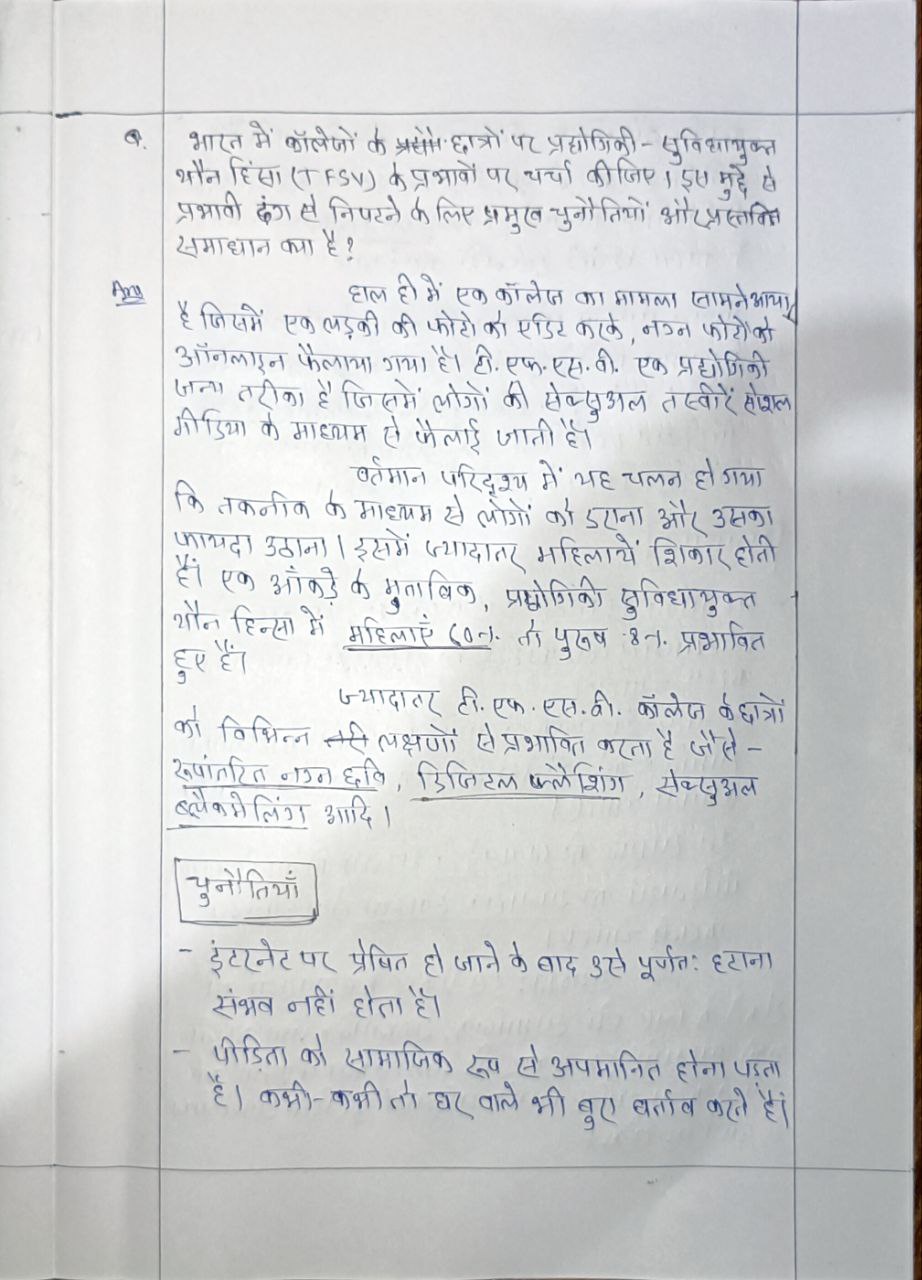 Q. भारत में कॉलेजों के छात्रों पर प्रद्योगिकी - सुविधायुक्त
यौन हिंसा (TFSV) के प्रभावों पर चर्चा कीजिए। इस मुद्दे से
प्रभावी ढंग से निपटने के लिए प्रमुख चुनौतियों और प्रस्तावित
समाधान क्या है?
Ans हाल ही में एक कॉलेज का मामला सामने आया
है जिसमें एक लड़की की फोटो को एडिट करके, नग्न फोटो को
ऑनलाइन फैलाया गया है। टी.एफ.एस.वी. एक प्रद्योगिकी
जन्य तरीका है जिसमें लोगों की सेक्सुअल तस्वीरें सोशल
मीडिया के माध्यम से फैलाई जाती है।
वर्तमान परिदृश्य में यह चलन हो गया
कि तकनीक के माध्यम से लोगों को डराना और उसका
फायदा उठाना। इसमें ज्यादातर महिलायें शिकार होती
हैं। एक आँकड़े के मुताबिक, प्रद्योगिकी सुविधायुक्त
यौन हिन्सा में महिलाएँ 60% तो पुरुष 8% प्रभावित
हुए हैं।
ज्यादातर टी.एफ.एस.वी. कॉलेज के छात्रों
को विभिन्न लक्षणों से प्रभावित करता है जैसे -
रूपांतरित नग्न छवि, डिजिटल फ्लैशिंग, सेक्सुअल
ब्लैकमेलिंग आदि।
चुनौतियाँ
- इंटरनेट पर प्रेषित हो जाने के बाद उसे पूर्णतः हटाना
संभव नहीं होता है।
- पीड़िता को सामाजिक रूप से अपमानित होना पड़ता
है। कभी-कभी तो घर वाले भी बुरा बर्ताव करते हैं।